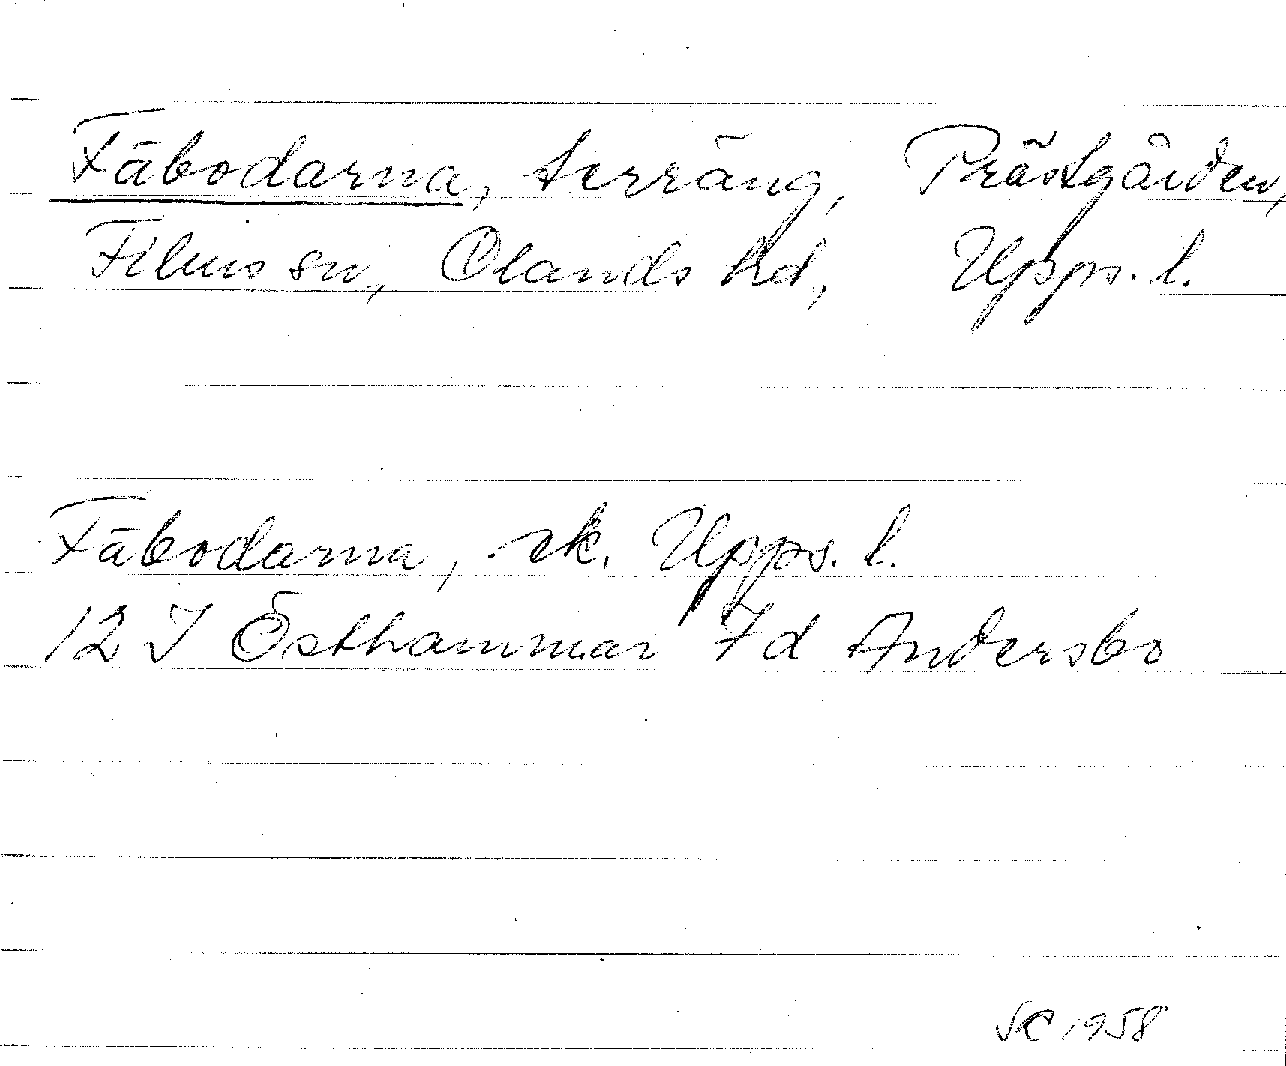 Fäbodarna, terräng, Prästgården,
Films sn, Olands hd, Upps. l.
Fäbodarna, ek. Upps. l.
12 I Östhammar 7d Andersbo
1958